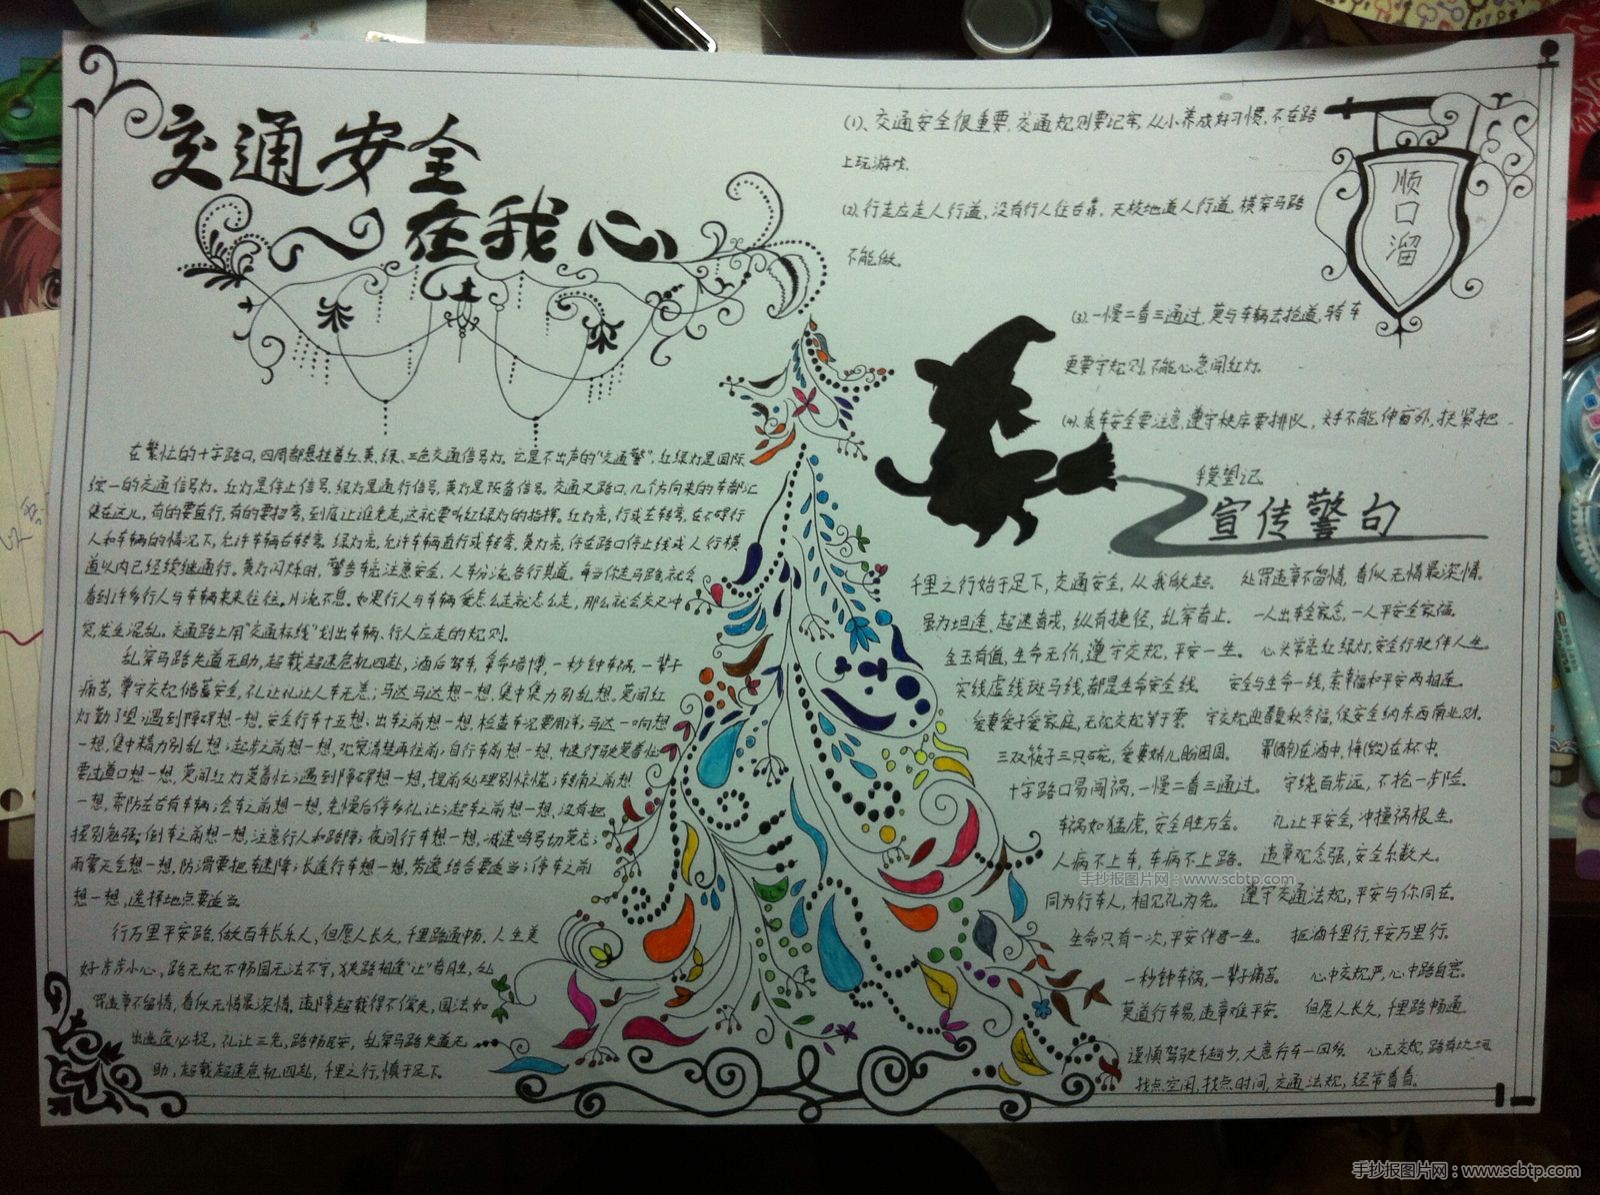 交通安全
在我心
在繁忙的十字路口,四周都悬挂着红、黄、绿、三色交通信号灯。它是不出声的“交通警”。红绿灯是国际
统一的交通信号灯。红灯是停止信号,绿灯是通行信号,黄灯是预备信号。交通叉路口,几个方向来的车都汇
集在这儿,有的要直行,有的要拐弯,到底让谁先走,这就要听红绿灯的指挥。红灯亮,行或左转弯,在不碍行
人和车辆的情况下,允许车辆右转弯。绿灯亮,允许车辆直行或转弯,黄灯亮,停在路口停止线或人行横
道以内已经续继通行。黄灯闪烁时,警告车亮注意安全,人车分流各行其道。每当你走马路,就会
看到许多行人与车辆来来往往。川流不息。如果行人与车辆爱怎么走就怎么走,那么就会交叉冲
突,发生混乱。交通路上用“交通标线”划出车辆、行人应走的规则。
乱穿马路失道无助,超载超速危机四赴,酒后驾车,拿命赌博,一秒钟车祸,一辈子
痛苦,
礼让礼让人车无恙;马达马达想一想,集中集力别乱想。莫闯红
灯勤了望;遇到障碍想一想。安全行车十五想:出车之前想一想,检查车况要周详;马达一响想
一想,集中精力别乱想;起步之前想一想,观察清楚再往前;自行车前想一想,中速行驶莫着忙;
要过道口想一想,莫闯红灯莫着忙;遇到障碍想一想,提前处理别惊慌;转弯之前想
一想,需防左右有车辆;会车之前想一想,先慢后停多礼让;超车之前想一想,没有把
握别勉强;倒车之前想一想,注意行人和路障;夜间行车想一想,减速鸣号切莫忘;
雨雾天气想一想,防滑要把车速降;长途行车想一想,劳逸结合要适当;停车之前
想一想,选择地点要适当
行万里平安路,做百年长乐人,但愿人长久,千里路通畅。人生美
好步步小心,路无规不畅国无法不宁,狭路相逢“让”者胜,处
罚违章不留情,看似无情最深情,违障超载得不偿失,国法如
礼让三先,路畅民安,乱穿马路失道无
助,超载超速危机四赴,千里之行,慎于足下。
顺口溜
(1)、交通安全很重要,交通规则要记牢,从小养成好习惯,不在路
上玩游戏。
(2).行走应走人行道,没有行人往右靠。天桥地道人行道,横穿马路
不能做。
(3).一慢二看三通过,莫与车辆去抢道,骑车
更要守规则,不能心急闯红灯。
(4).乘车安全要注意,遵守秩序要排队,头手不能伸窗外,扶紧把
手莫望记
宣传警句
千里之行始于足下,交通安全,从我做起。 处罚违章不留情,看似无情最深情。
虽为坦途,超速者戒,纵有捷径,乱穿者止。 一人出车全家念,一人平安全家福。
金玉有值,生命无价,遵守交规,平安一生。 心头常亮红绿灯,安全行驶伴人生。
实线虚线斑马线,都是生命安全线。 安全与生命一线,索幸福和平安两相连。
爱妻爱子爱家庭,无视交规等于零 守交规迎春夏秋冬福,保安全纳东西南北财。
三双筷子三只碗,爱妻娇儿盼团圆。 罪(醉)在酒中,悔(毁)在杯中.
十字路口易闯祸,一慢二看三通过。 宁绕百步远,不抢一步险。
车祸如猛虎,安全胜万金。 礼让平安全,冲撞祸根生。
人病不上车,车病不上路。 违章观念强,安全系数大。
同为行车人,相见礼为先。 遵守交通法规,平安与你同在。
生命只有一次,平安伴君一生。 拒酒千里行,平安万里行。
一秒钟车祸,一辈子痛苦。 心中交规严,心中路自宽。
莫道行车易,违章难平安。 但愿人长久,千里路畅通。
谨慎驾驶千趟少,大意行车一回多。 心无交规,路有坎坷
找点空闲,找点时间,交通法规,经常看看。
手抄报图片网:www.scbtp.com
手抄报图片网:www.scbtp.com